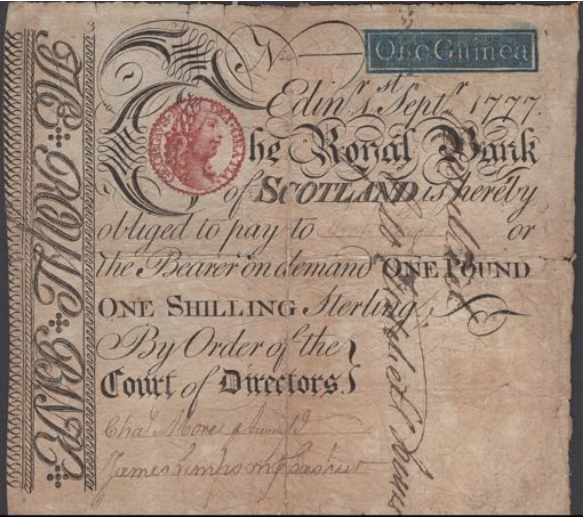 THE ROYAL BANK
No
One Guinea
Edinr. 1. Septr. 1777.
The Royal Bank
of SCOTLAND is hereby
obliged to pay to or
the Bearer on demand ONE POUND
ONE SHILLING Sterling;
By Order of the
Court of Directors.
James Simpson Cashier